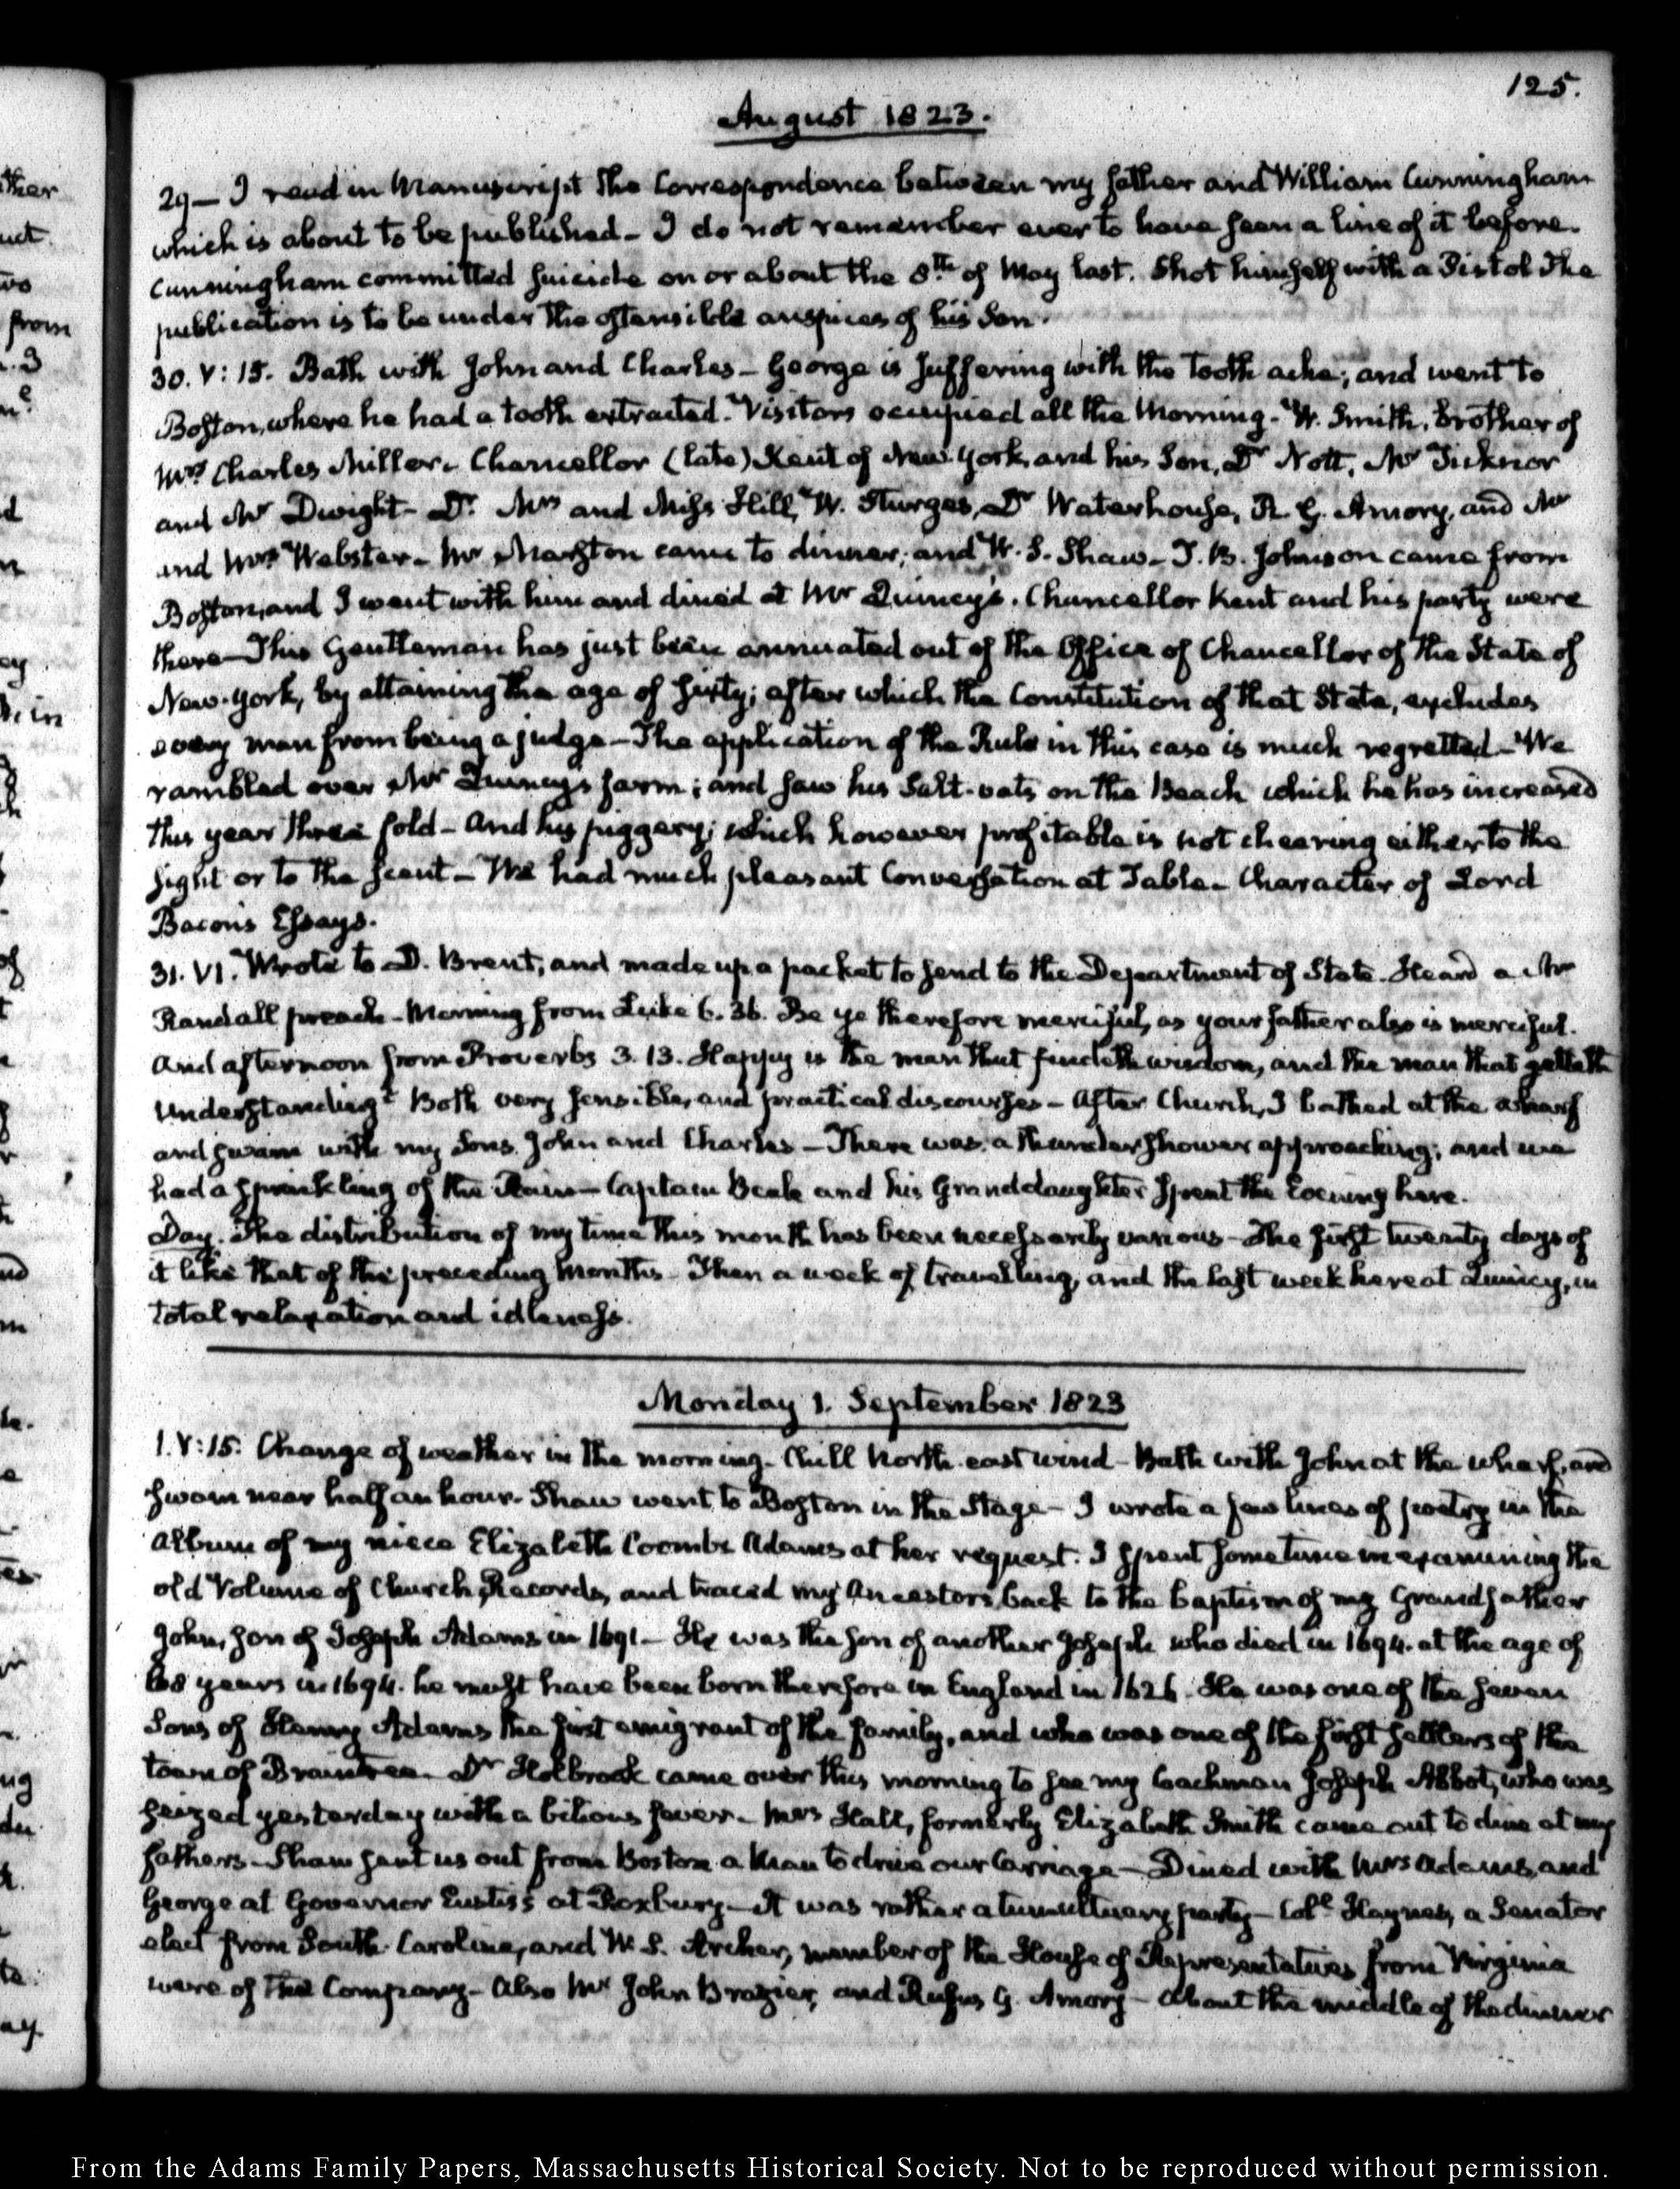 125.
August 1823.
29— I read in Manuscript the Correspondence between my father and William Cunningham
which is about to be published– I do not remember ever to have seen a line of it before.
Cunningham committed suicide on or about the 8th of May last. Shot himself with a Pistol The
publication is to be under the ostensible auspices of his Son.
30. V: 15. Bath with John and Charles– George is suffering with the tooth ache; and went to
Boston, where he had a tooth extracted. Visitors occupied all the Morning– W. Smith, brother of
Mrs Charles Miller. Chancellor (late) Kent of New-York, and his Son, Dr Nott, Mr Ticknor
and Mr Dwight– Dr Mrs and Miss Hill, W. Sturges, Dr Waterhouse, R. G. Amory, and Mr
and Mrs Webster– Mr Marston came to dinner, and W. S. Shaw– T. B. Johnson came from
Boston, and I went with him and dined at Mr Quincy's. Chancellor Kent and his party were
there—This Gentleman has just been annuated out of the Office of Chancellor of the State of
New-York, by attaining the age of sixty; after which the Constitution of that State, excludes
every man from being a judge–The application of the Rule in this case is much regretted–We
rambled over Mr Quincy's farm; and saw his Salt-vats on the Beach which he has increased
this year three fold– And his piggery; which however profitable is not cheering either to the
sight or to the scent– We had much pleasant Conversation at Table– Character of Lord
Bacon's Essays.
31. VI. Wrote to D. Brent, and made up a packet to send to the Department of State. Heard a Mr
Randall preach– Morning from Luke 6. 36. Be ye therefore merciful, as your father also is merciful.
And afternoon from Proverbs 3. 13. Happy is the man that findeth wisdom, and the man that getteth
understanding. Both very sensible, and practical discourses– After Church, I bathed at the wharf
and swam with my Sons John and Charles–There was a thunder shower approaching; and we
had a sprinkling of the Rain– Captain Beale and his Granddaughter spent the Evening here.
Day. The distribution of my time this month has been necessarily various–The first twenty days of
it like that of the preceding Months– Then a week of travelling, and the last week here at Quincy, in
total relaxation and idleness.
Monday 1. September 1823
1. V: 15. Change of weather in the morning. Chill North-east wind– Bath with John at the wharf, and
swam near half an hour. Shaw went to Boston in the Stage– I wrote a few lines of poetry in the
album of my niece Elizabeth Coombs Adams at her request. I spent some time in examining the
old Volume of Church Records, and traced my Ancestors back to the baptism of my Grandfather
John, son of Joseph Adams in 1691– He was the son of another Joseph who died in 1694. at the age of
68 years in 1694. he must have been born therefore in England in 1626. He was one of the seven
Sons of Henry Adams the first emigrant of the family, and who was one of the first settlers of the
town of Braintree. Dr Holbrook came over this morning to see my Coachman Joseph Abbot, who was
seized yesterday with a bilious fever– Mrs Hall, formerly Elizabeth Smith came out to dine at my
fathers–Shaw sent us out from Boston a Man to drive our Carriage—Dined with Mrs Adams, and
George at Governor Eustis's at Roxbury–It was rather a tumultuary party– Coll Haynes, a Senator
elect from South-Carolina, and W. S. Archer, member of the House of Representatives from Virginia
were of the Company– Also Mr John Brazier, and Rufus G. Amory– About the middle of the dinner
From the Adams Family Papers, Massachusetts Historical Society. Not to be reproduced without permission.